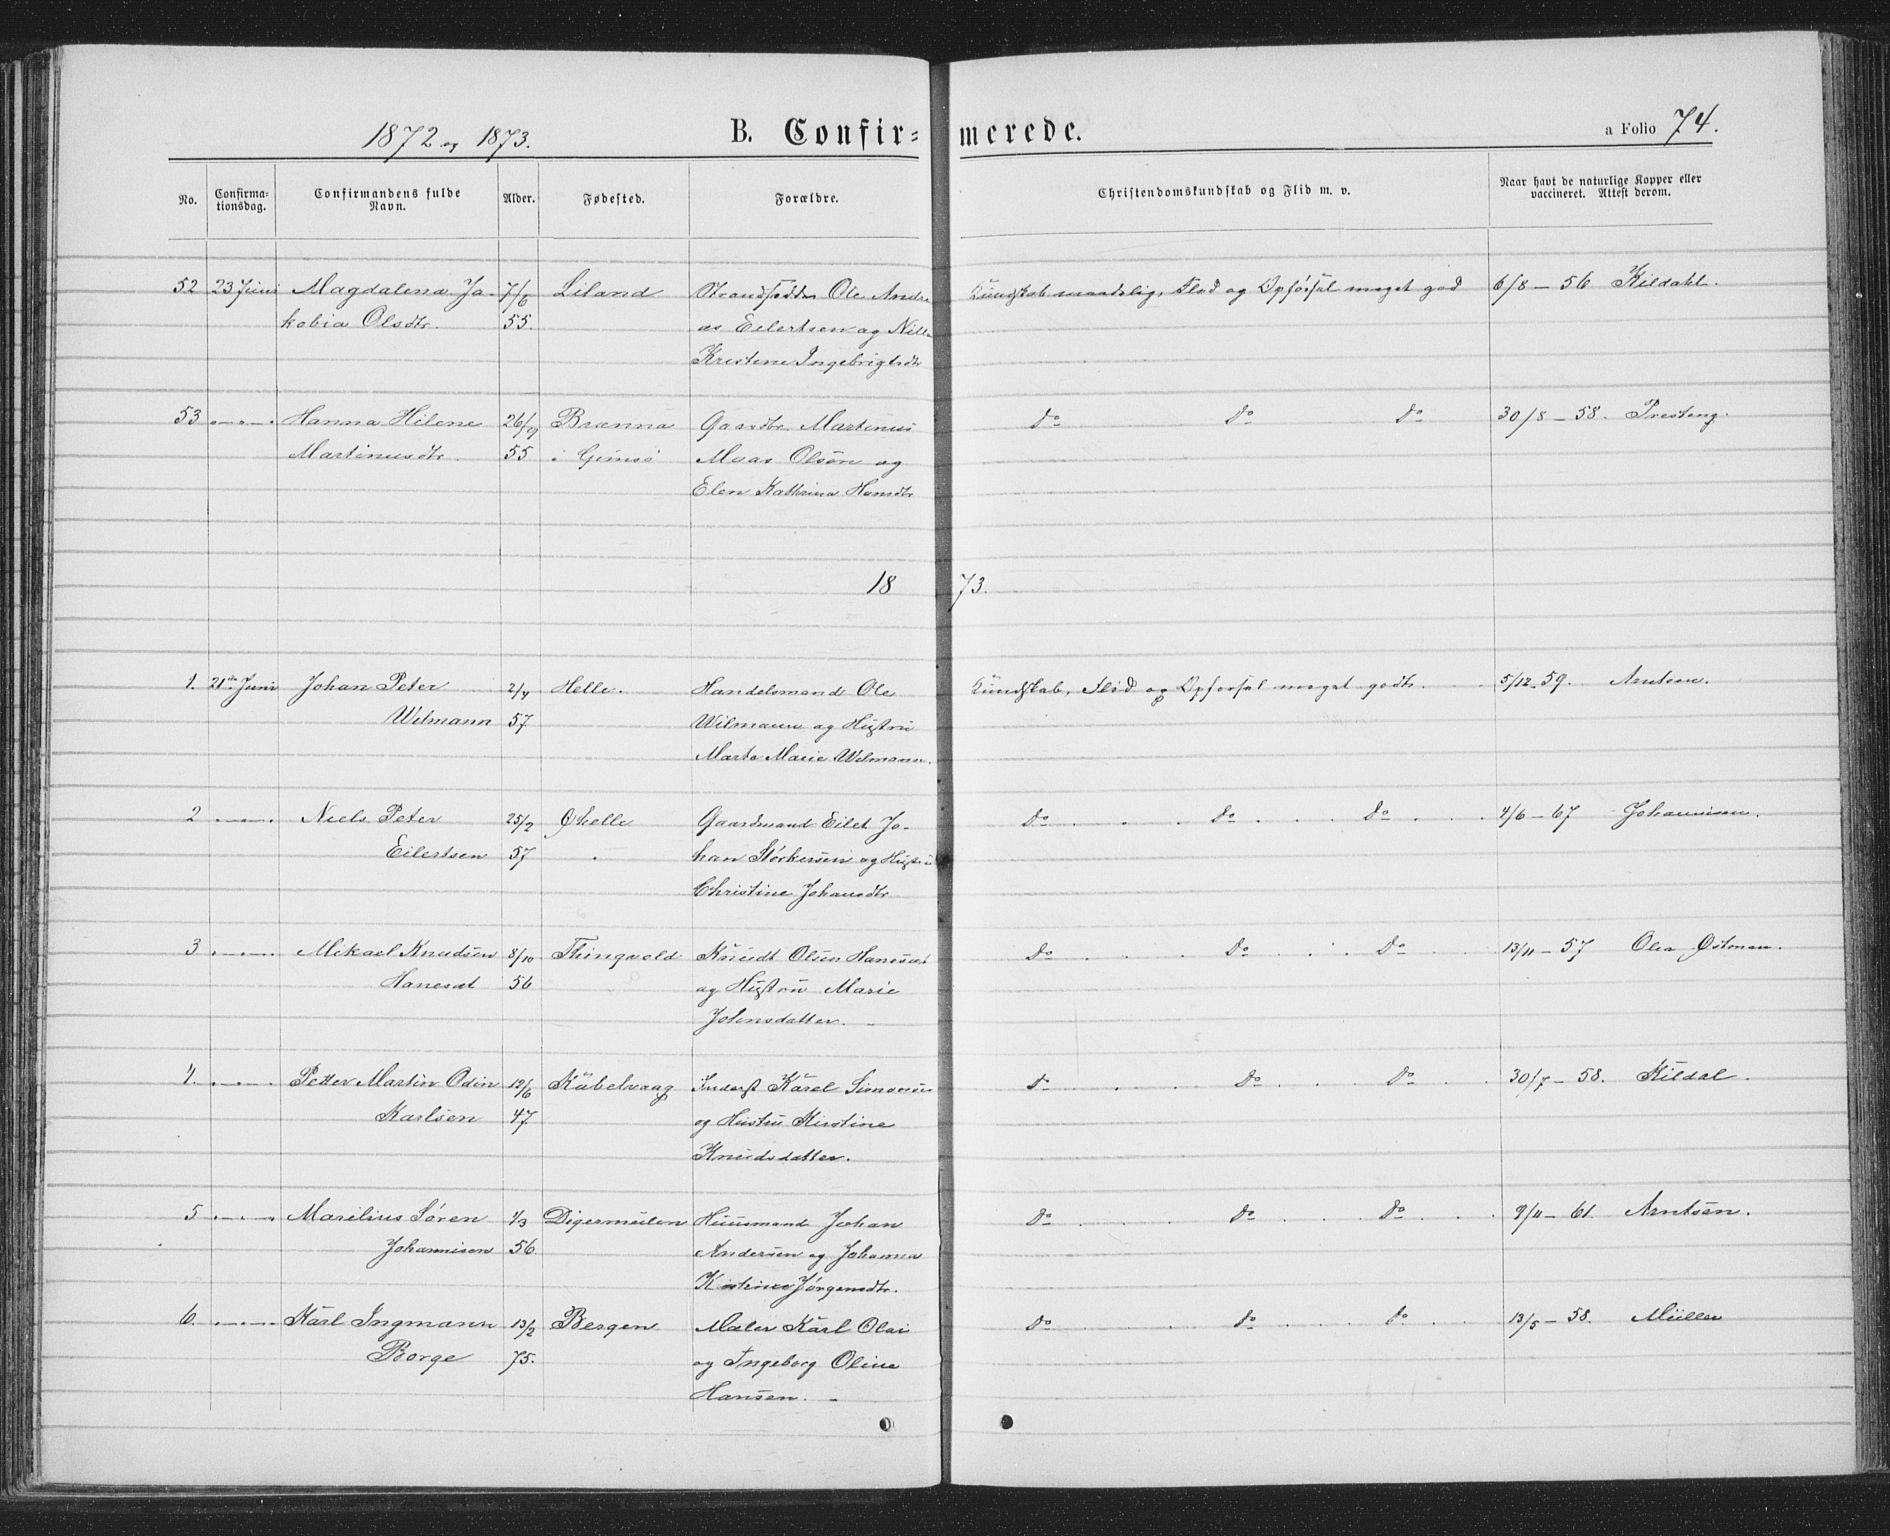 1872 og 1873.
B. Confir-merede.
a Folio 74.
No.
Confirma-tionsdag.
Confirmandens fulde Navn.
Alder.
Fødested.
Forældre.
Christendomskundskab og Flid m. v.
Naar havt de naturlige Kopper eller vaccineret. Attest derom.
52 23 Juni Magdalena Ja- 7/6 Liland Ole Andre Kundskab maadelig, Flid og Opførsel meget god 6/8 - 56 Kildahl.
kobia Olsdtr. 55. as Eilertsen og
Kristine Ingebrigtsdtr
53 Hanna Hilene 26/ Brænna Gaardbr. Martinus do do do 30/8 - 58. Presteng.
Martinusdtr. 55 i Gimsö Olsen og
Elen Kathrina Hansdtr
1873.
1. 21de Juni Johan Peter 2/4 Helle. Handelsmand Ole Kundskab, Flid og Opførsel meget godt. 5/12 - 59. Arntsen.
Wilmann 57. Wilmann og Hustru
Marta Marie Wilmann.
2 Niels Peter 25/2 Ø Helle Gaardmand Eilet Jo- do do do 4/6 - 67 Johannisen.
Eilertsen 57 han Störkersen og Hustru
Christine Johansdtr
3 Mikael Knudsen 8/10 Thingvold Knudt Olsen Hanesæt do do do 13/11 - 57 Olea Østman.
Hanesæt 56 og Hustru Marie
Johnsdatter.
4. Petter Martin Odin 12/6 Kabelvaag Inderst Karel Simonsen do do do 30/7 - 58. Kildal.
Karlsen 47. og Hustru Kirstine
Knudsdatter.
5 Marilius Sören 1/3 Digermulen Huusmand Johan do do do 9/11 - 61. Arntsen.
Johannisen 56. Andersen og Johanna
Katrine Jörgensdtr.
6. Karl Ingmann 13/2 Bergen Maler Karl Olai do do do 13/5 - 58. Müller
Borge 75. og Ingeborg Oline
Hansen.